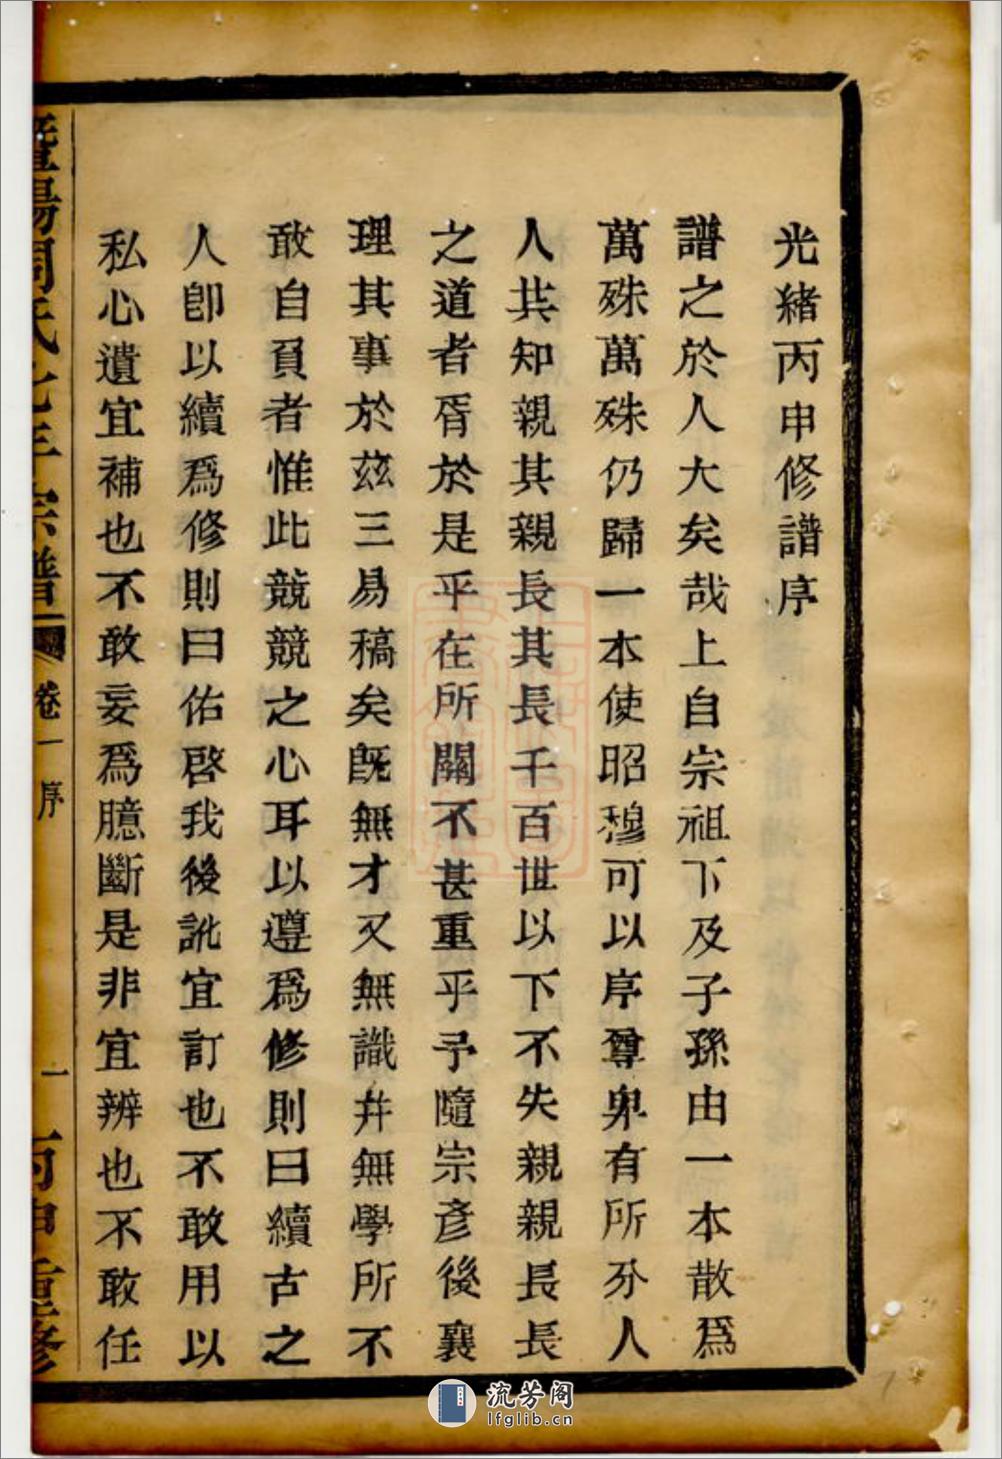 光緒丙申修譜序
譜之於人大矣哉上自宗祖下及子孫由一本散爲
萬殊萬殊仍歸一本使昭穆可以序尊卑有所分人
人共知親其親長其長千百世以下不失親親長長
之道者胥於是乎在所關不甚重乎予隨宗彥後襄
理其事於茲三易稿矣旣無才又無識幷無學所不
敢自負者惟此競競之心耳以遵爲修則曰續古之
人卽以續爲修則曰佑啓我後訛宜訂也不敢用以
私心遺宜補也不敢妄爲臆斷是非宜辨也不敢任
暨陽周氏 宗譜
卷一 序
一
丙申重修
流芳阁
lfglib.cn